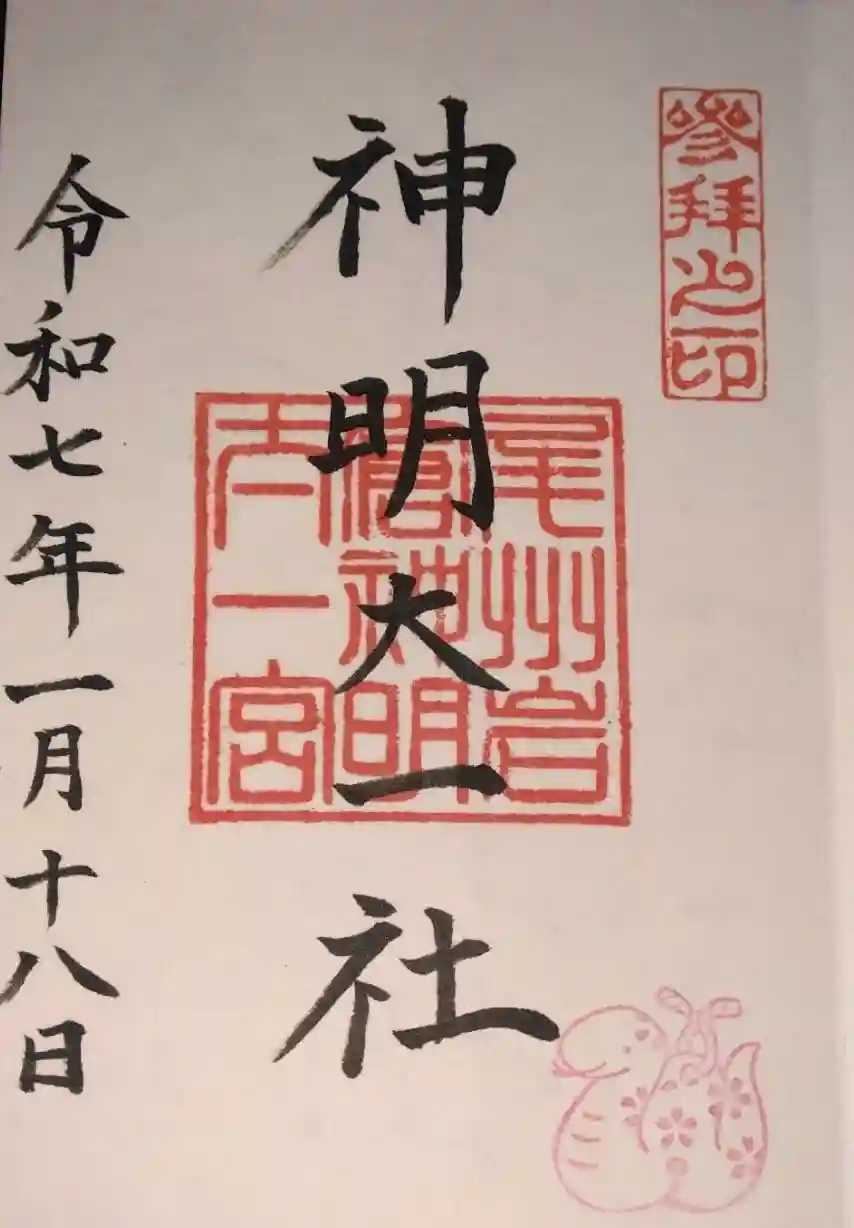 参拝之印
神明大一社
尾州岩
倉神明
大一宮
令和七年一月十八日